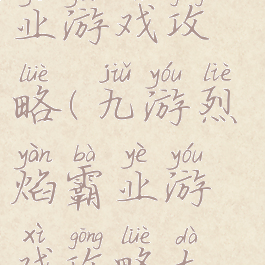 业游戏攻
lüè jiǔ yóu liè
略(九游烈
yàn bà yè yóu
焰霸业游
xì gōng lüè dà